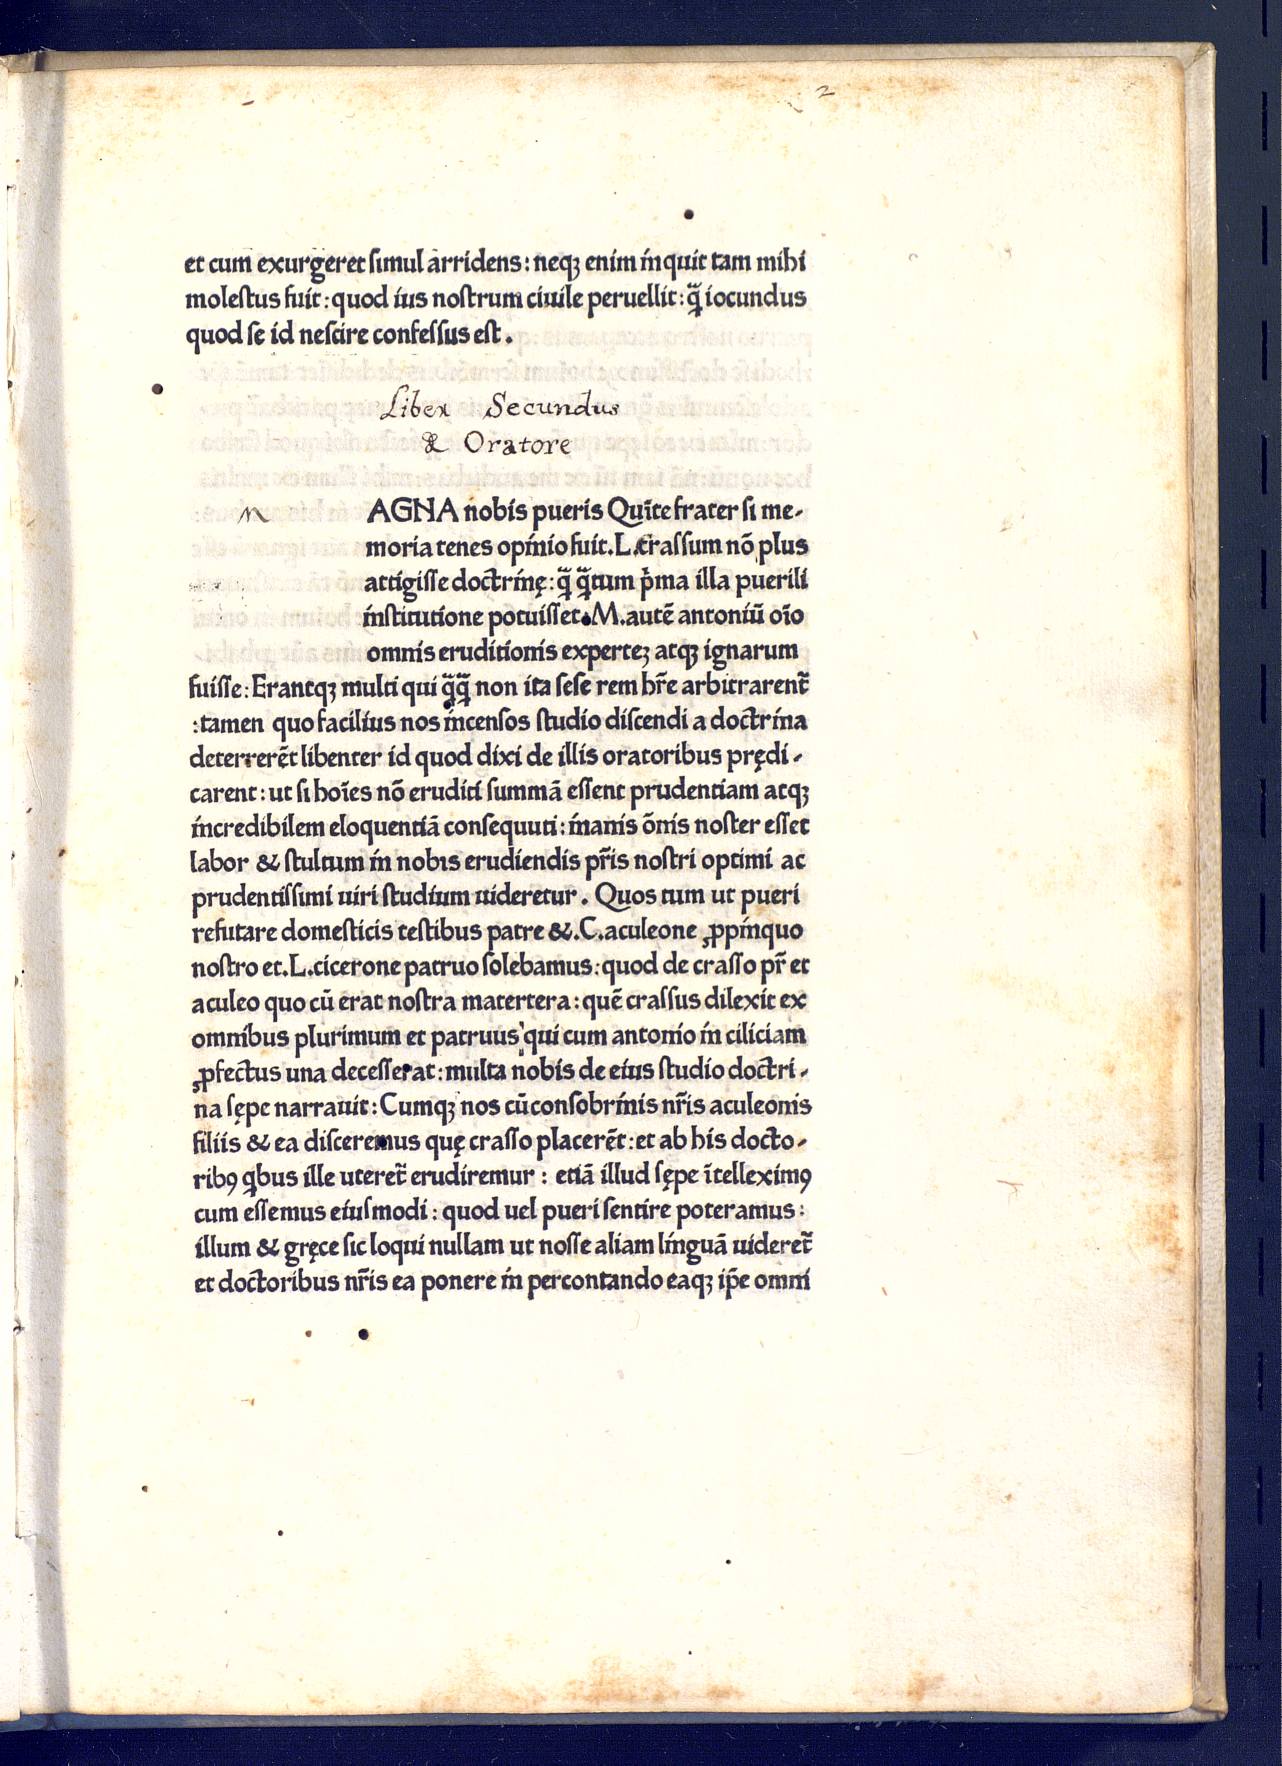 2
et cum exurgeret simul arridens: neqꝫ enim inquit tam mihi
molestus fuit: quod ius nostrum ciuile peruellit: q̃ iocundus
quod se id nescire confessus est.
Liber Secundus
de Oratore
m AGNA nobis pueris Quīte frater si me-
moria tenes opinio fuit. L. crassum nō plus
attigisse doctrinę: q̃ q̃tum p̄ma illa puerili
institutione potuisset. M. autē antoniū oīo
omnis eruditionis experteꝫ atqꝫ ignarum
fuisse: Erantqꝫ multi qui q̃q̃ non ita sese rem hr̄e arbitrarent̃
: tamen quo facilius nos incensos studio discendi a doctrina
deterrerēt libenter id quod dixi de illis oratoribus prędi-
carent: ut si hoīes nō eruditi summā essent prudentiam atqꝫ
incredibilem eloquentiā consequuti: inanis ōnis noster esset
labor & stultum in nobis erudiendis pr̄is nostri optimi ac
prudentissimi uiri studium uideretur. Quos tum ut pueri
refutare domesticis testibus patre &. C. aculeone ꝓpinquo
nostro et. L. cicerone patruo solebamus: quod de crasso pr̄ et
aculeo quo cū erat nostra matertera: quē crassus dilexit ex
omnibus plurimum et patruus qui cum antonio in ciliciam
ꝓfectus una decesserat: multa nobis de eius studio doctri-
na sępe narrauit: Cumqꝫ nos cū consobrinis nr̄is aculeonis
filiis & ea disceremus quę crasso placerēt: et ab his docto-
ribꝯ qbus ille uteret̃ erudiremur: etiā illud sępe ītelleximꝯ
cum essemus eiusmodi: quod uel pueri sentire poteramus:
illum & gręce sic loqui nullam ut nosse aliam linguā uideret̃
et doctoribus nr̄is ea ponere in percontando eaqꝫ ip̄e omni